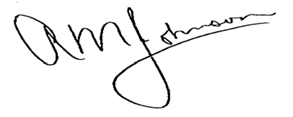 RM Johnson